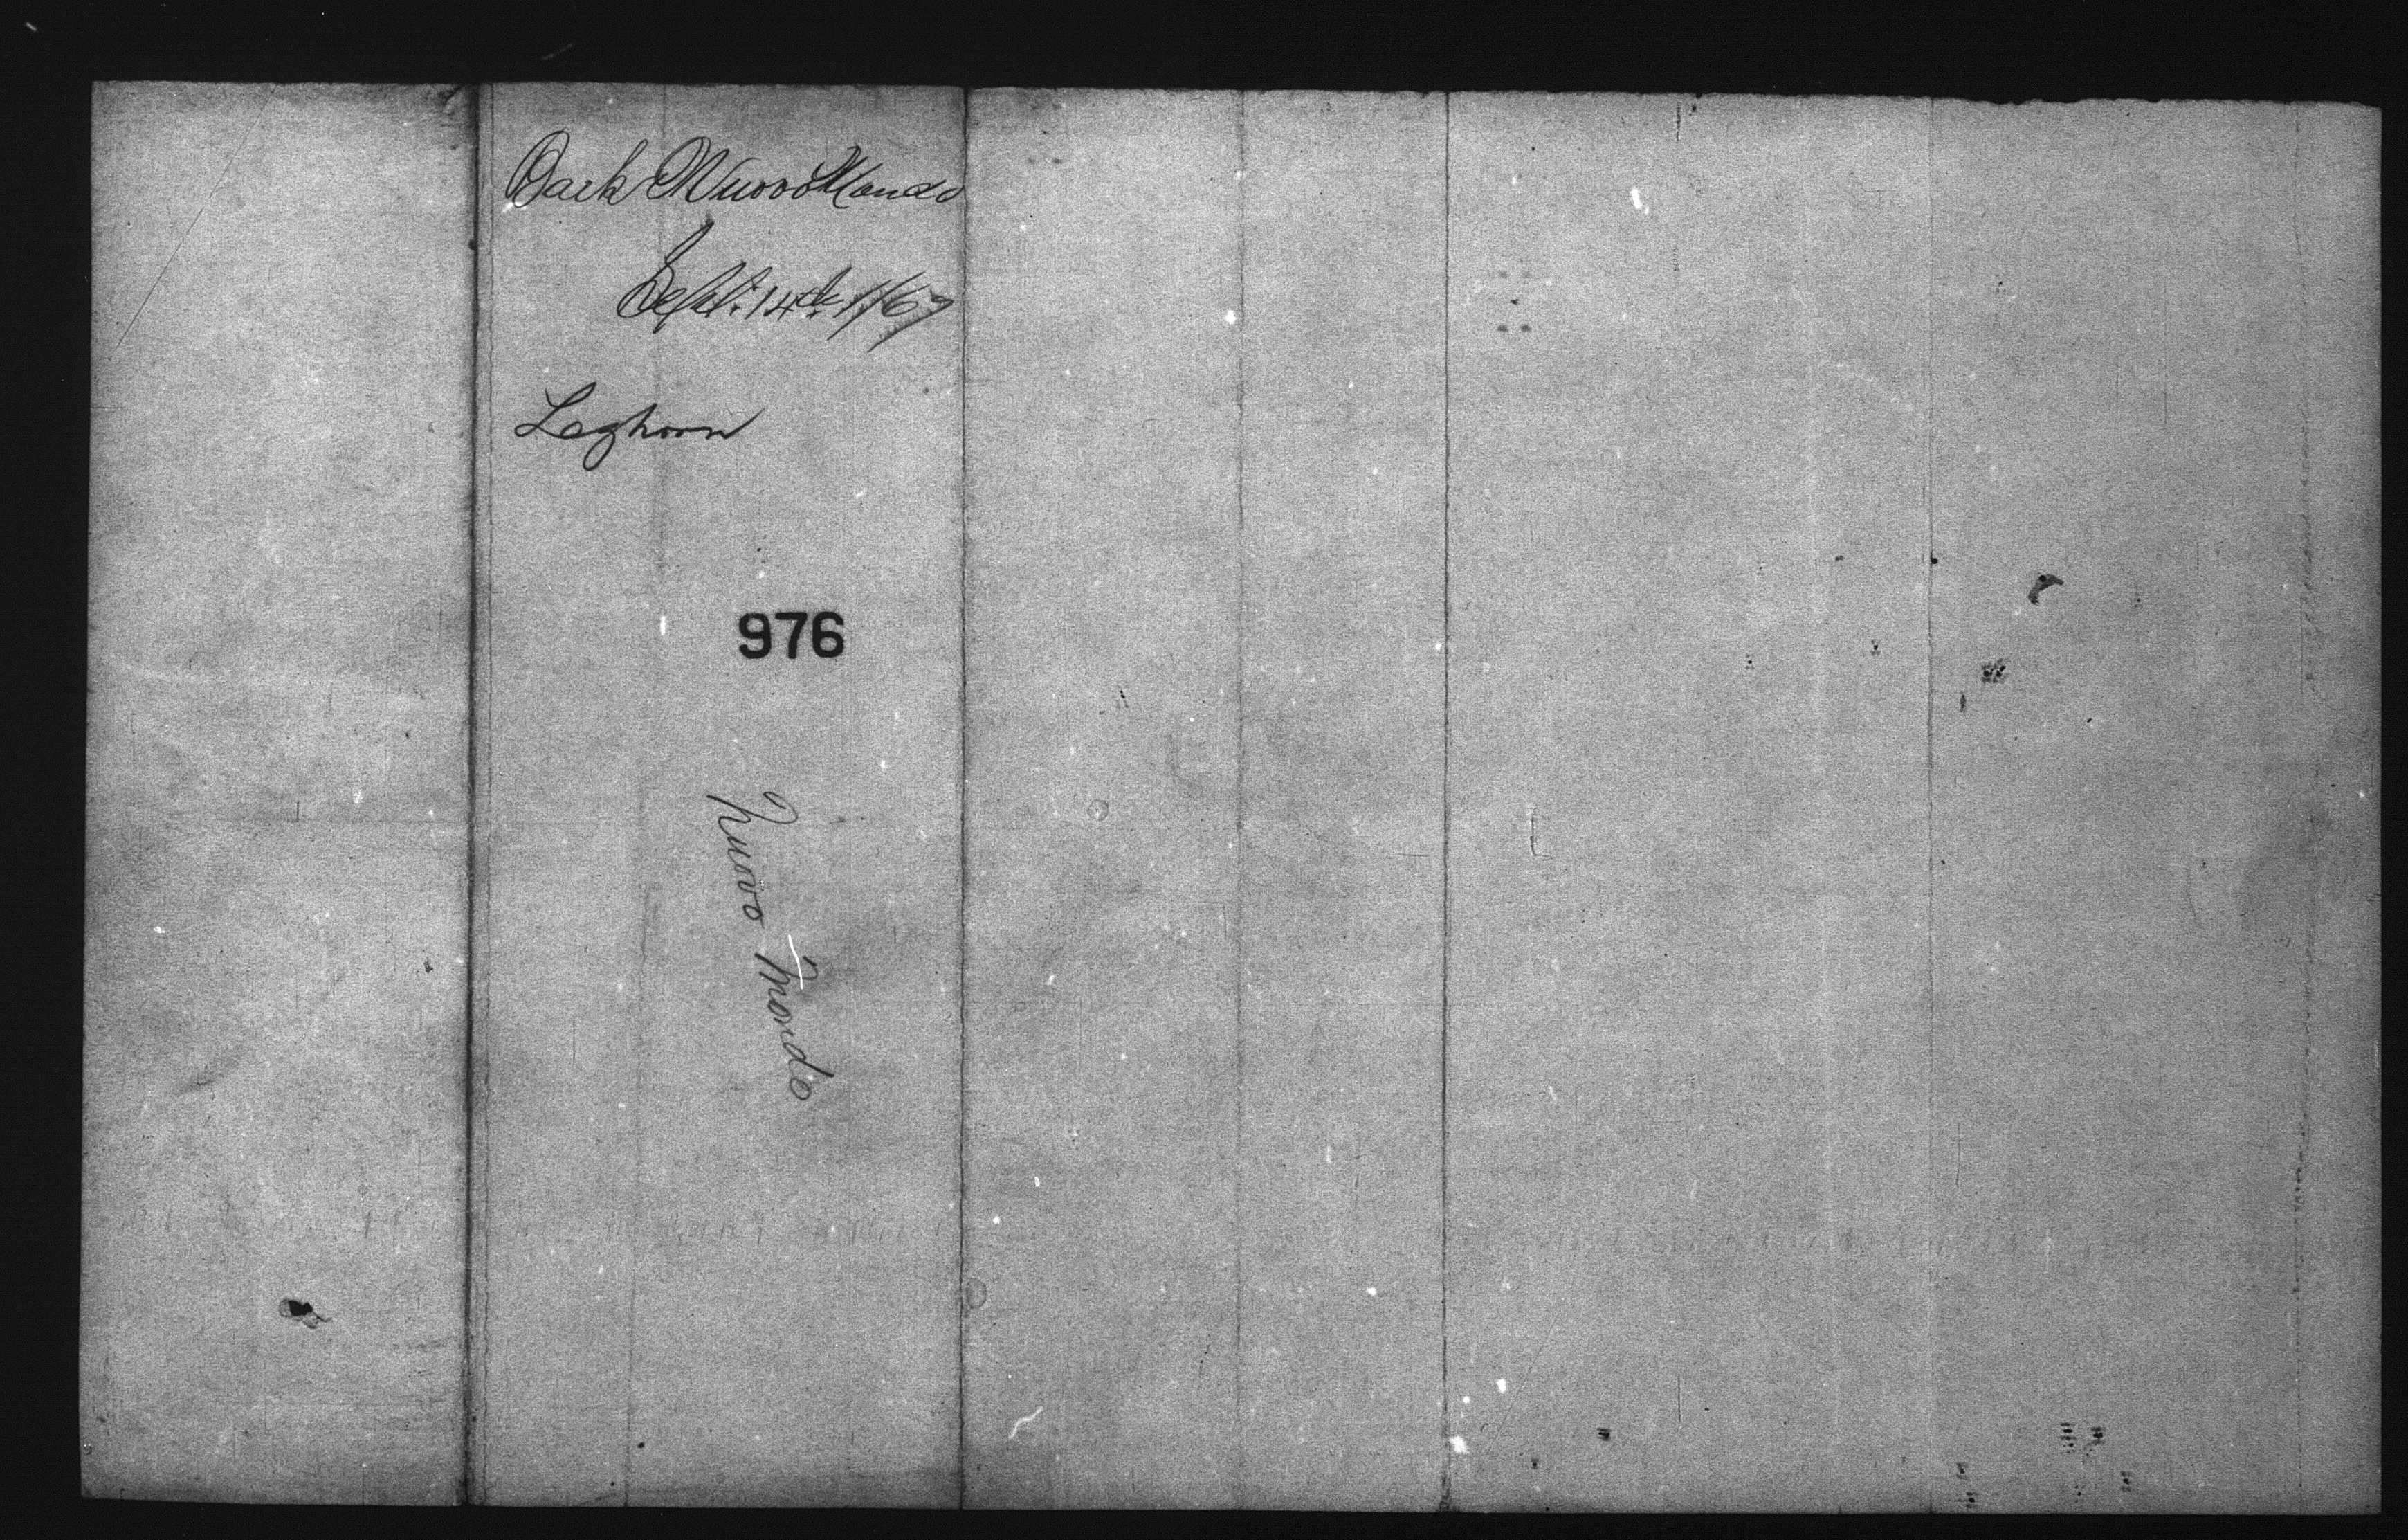 Bark Nuovo Mondo
Sept: 14th 1/67
Leghorn
976
Nuovo Mondo